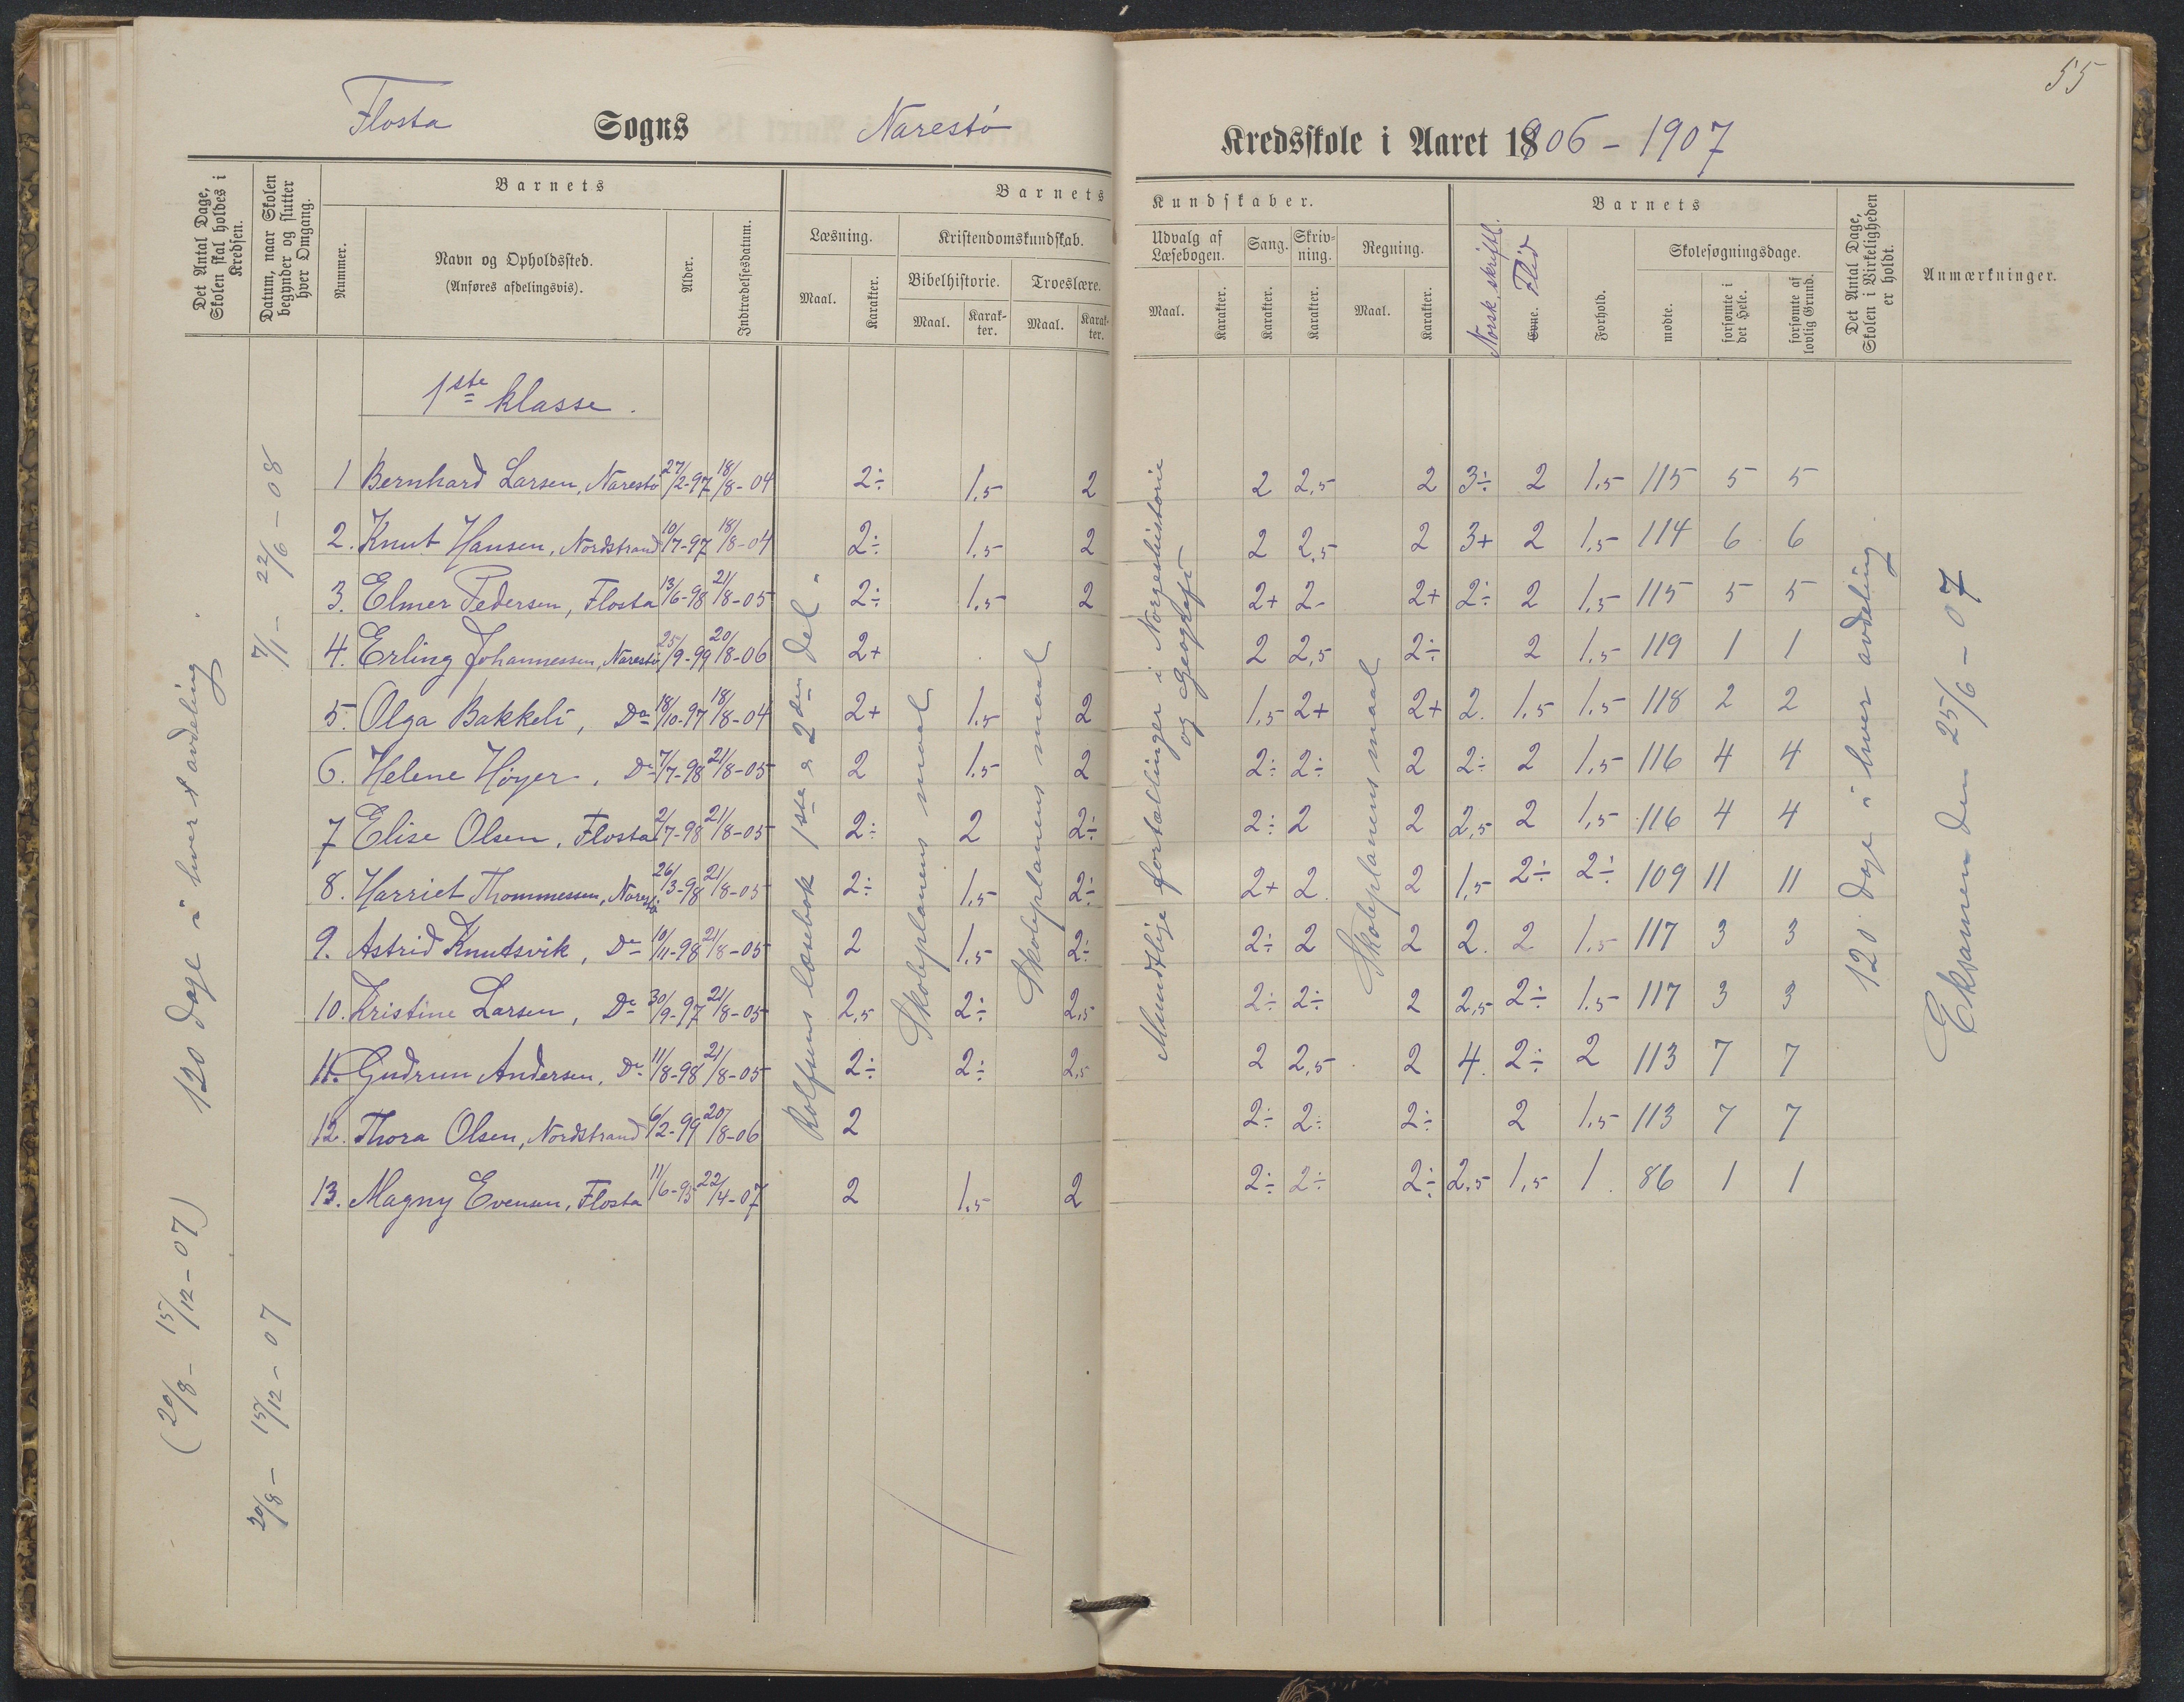 55
Flosta Sogns Narestö Kredsskole i Aaret 1906 - 1907
Det Antal Dage, Skolen skal holdes i Kredsen.
Datum, naar Skolen begynder og slutter hver Omgang.
Barnets
Nummer.
Navn og Opholdssted.
(Anføres afdelingsvis).
Alder.
Indtrædelsesdatum.
Barnets Kundskaber.
Læsning.
Maal. Karakter.
Kristendomskundskab.
Bibelhistorie. Troeslære.
Maal. Karak-ter. Maal. Karak-ter.
Udvalg af Læsebogen.
Maal. Karakter.
Sang. Karakter.
Skriv-ning. Karakter.
Regning.
Maal. Karakter.
Barnets
Norsk, skriftl.
Evne. Flid
Forhold.
Skolesøgningsdage.
mødte. forsømte i det Hele. forsømte af lovlig Grund.
Det Antal Dage, Skolen i Virkeligheden er holdt.
Anmærkninger.
1ste klasse.
1 Bernhard Larsen, Narestö 27/2-97 18/8-04 2÷ 1,5 2 2 2,5 2 3÷ 2 1,5 115 5 5
2. Knut Hansen, Nordstrand 10/7-97 18/8-04 2÷ 1,5 2 2 2,5 2 3+ 2 1,5 114 6 6
3. Elmer Pedersen, Flosta 13/6-98 21/8-05 2÷ 1,5 2 2+ 2- 2+ 2÷ 2 1,5 115 5 5
4. Erling Johannessen, Narestö 25/9-99 20/8-06 2+ 2 2,5 2÷ 2 1,5 119 1 1
5. Olga Bakkeli, Do 18/10-97 18/8-04 2+ 1,5 2 1,5 2+ 2+ 2. 1,5 1,5 118 2 2
6. Helene Höyer, Do 7/7-98 21/8-05 2 1,5 2 2÷ 2÷ 2 2÷ 2 1,5 116 4 4
7 Elise Olsen, Flosta 2/7-98 21/8-05 2÷ 2 2÷ 2÷ 2 2 2,5 2 1,5 116 4 4
8. Harriet Thommessen, Narestö 26/3-98 21/8-05 2÷ 1,5 2÷ 2+ 2. 2 1,5 2÷ 2÷ 109 11 11
9. Astrid Knutsvik, Do 10/11-98 21/8-05 2 1,5 2÷ 2÷ 2 2 2. 2 1,5 117 3 3
10. Kristine Larsen, Do 30/9-97 21/8-05 2,5 2÷ 2,5 2÷ 2÷ 2 2,5 2÷ 1,5 117 3 3
11. Gudrun Andersen, Do 11/8-98 21/8-05 2÷ 2÷ 2,5 2 2,5 2 4. 2÷ 2 113 7 7
12. Thora Olsen, Nordstrand 6/2-99 20/8-06 2 2÷ 2÷ 2÷ 2 1,5 113 7 7
13. Magny Evensen, Flosta 11/6-95 22/4-07 2 1,5 2 2÷ 2÷ 2÷ 2,5 1,5 1. 86 1 1
120 dage i hver avdeling.
(20/8 - 15/12-07)
7/1 - 22/6-08
20/8 - 15/12-07
Rolfsens læsebok 1ste & 2den del
Skoleplanens maal
Skoleplanens maal
Mundtlige fortællinger i Norgeshistorie og geografi
Skoleplanens maal
120 dage i hver avdeling
Eksamen den 25/6-07